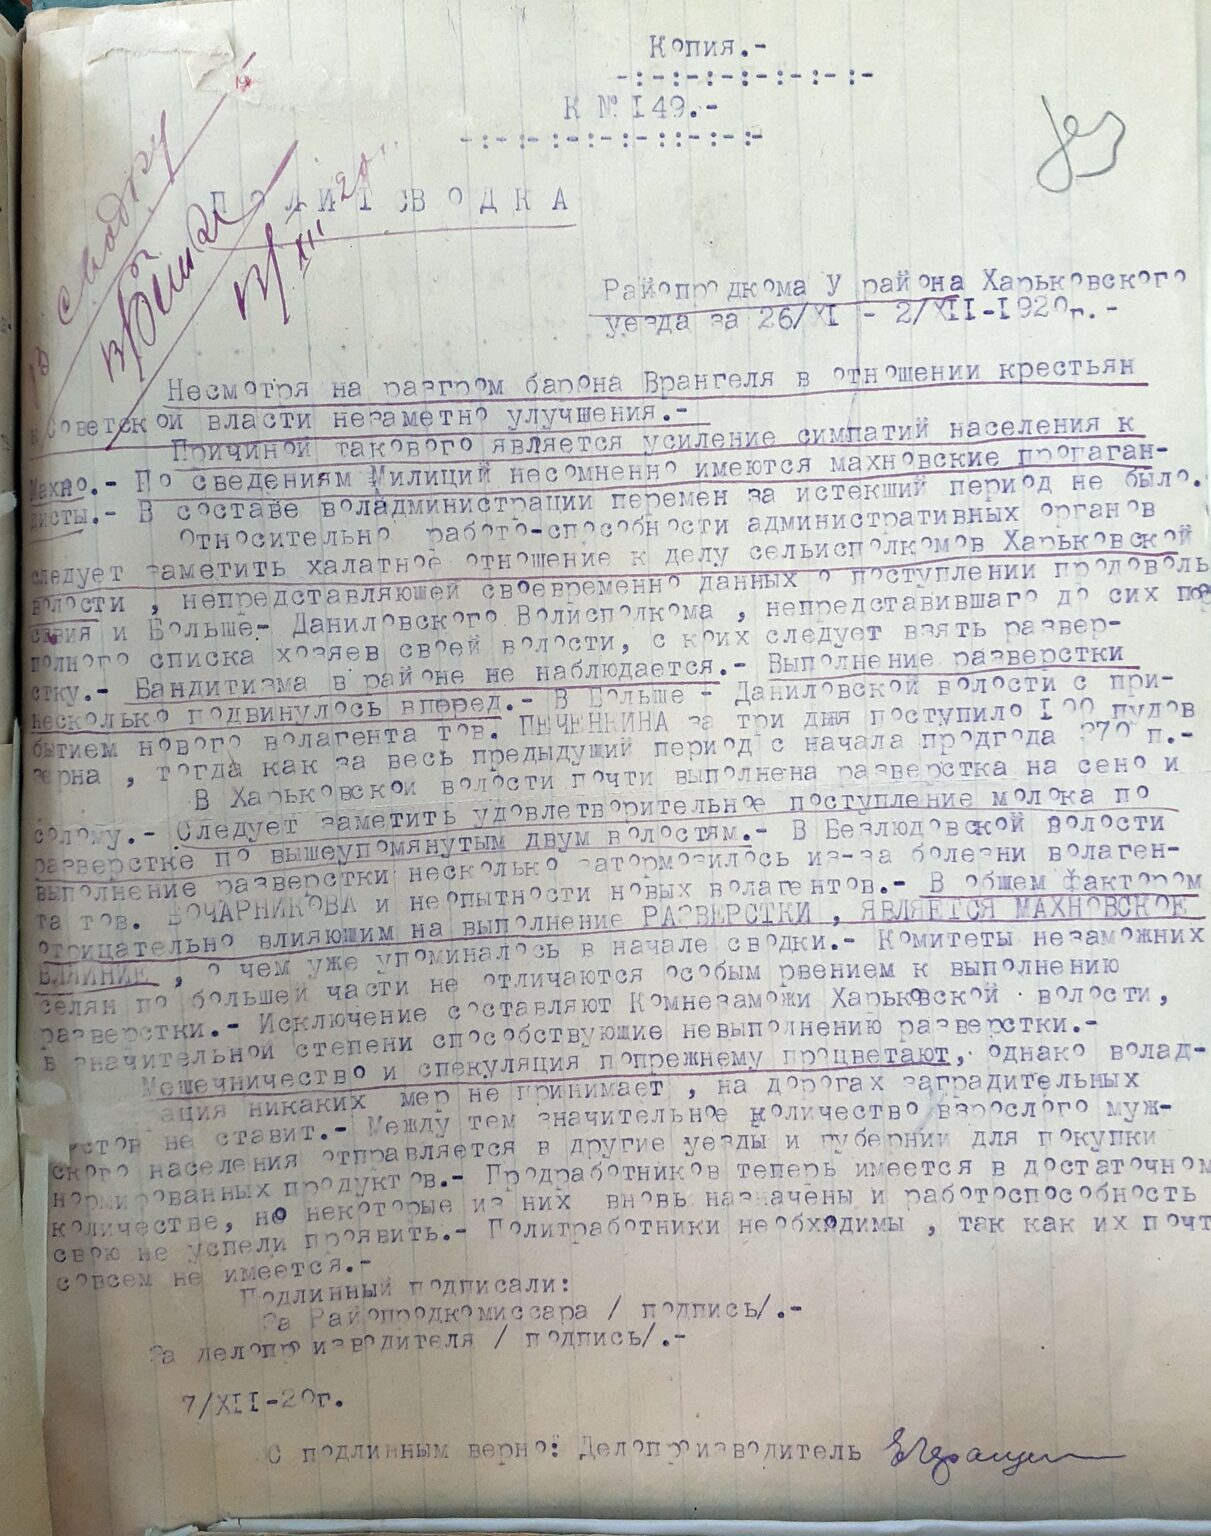 Копия.-
-:-:-:-:-:-:-:-
К № 149.-
-:-:-:-:-:-::-:-:-
в сводку
13/XII 20г.
ПОЛИТСВОДКА
Райопродкома У района Харьковского
уезда за 26/XI - 2/XII-1920г.-
Несмотря на разгром барона Врангеля в отношении крестьян
к Советской власти незаметно улучшения.-
Причиной такового является усиление симпатий населения к
Махно.- По сведениям Милиций несомненно имеются махновские пропаган-
дисты.- В составе воладминистрации перемен за истекший период не было.
Относительно работо-способности административных органов
следует заметить халатное отношение к делу сельисполкомов Харьковской
волости , непредставляющей своевременно данных о поступлении продоволь
ствия и Больше- Даниловского Волисполкома , непредставившаго до сих пор
полного списка хозяев своей волости, с коих следует взять развер-
стку.- Бандитизма в районе не наблюдается.- Выполнение разверстки
несколько подвинулось вперед.- В Больше - Даниловской волости с при-
бытием нового волагента тов. ПЕЧЕНКИНА за три дня поступило 100 пудов
зерна , тогда как за весь предыдущий период с начала продгода 370 п.-
В Харьковской волости почти выполнена разверстка на сено и
солому.- Следует заметить удовлетворительное поступление молока по
разверстке по вышеупомянутым двум волостям.- В Безлюдовской волости
выполнение разверстки несколько затормозилось из-за болезни волаген-
та тов. БОЧАРНИКОВА и неопытности новых волагентов.- В общем фактором
отрицательно влияющим на выполнение РАЗВЕРСТКИ , ЯВЛЯЕТСЯ МАХНОВСКОЕ
ВЛЯИНИЕ , о чем уже упоминалось в начале сводки.- Комитеты незаможних
селян по большей части не отличаются особым рвением к выполнению
разверстки.- Исключение составляют Комнезаможи Харьковской волости,
в значительной степени способствующие невыполнению разверстки.-
Мешечничество и спекуляция попрежнему процветают, однако волад-
ация никаких мер не принимает , на дорогах заградительных
стов не ставит.- Между тем значительное количество взрослого муж-
ского населения отправляется в другие уезды и губернии для покупки
нормированных продуктов.- Продработников теперь имеется в достаточном
количестве, но некоторые из них вновь назначены и работоспособность
свою не успели проявить.- Политработники необходимы , так как их почт
совсем не имеется.-
Подлинный подписали:
За Райопродкомиссара / подпись/.-
За делопроизводителя / подпись/.-
7/XII-20г.
С подлинным верно: Делопроизводитель